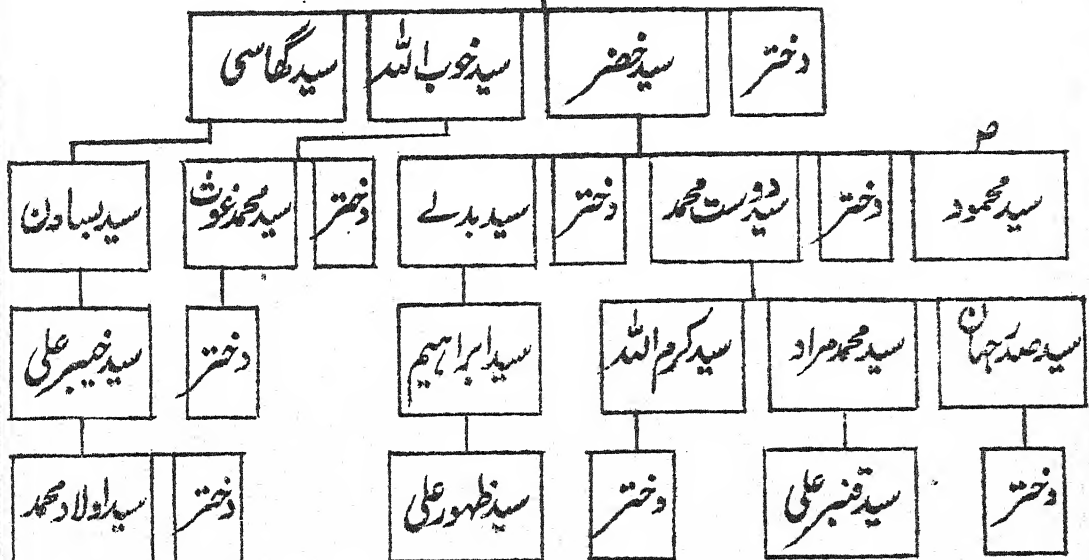 دختر
سید خضر
سید خوب اللہ
سید گھاسی
سید محمود
دختر
سید دوست محمد
دختر
سید بدلے
دختر
سید محمد غوث
سید بساون
سید صدر جہان
سید محمد مراد
سید کرم اللہ
سید ابراہیم
دختر
سید خیبر علی
دختر
سید قنبر علی
دختر
سید ظہور علی
دختر
سید اولاد محمد